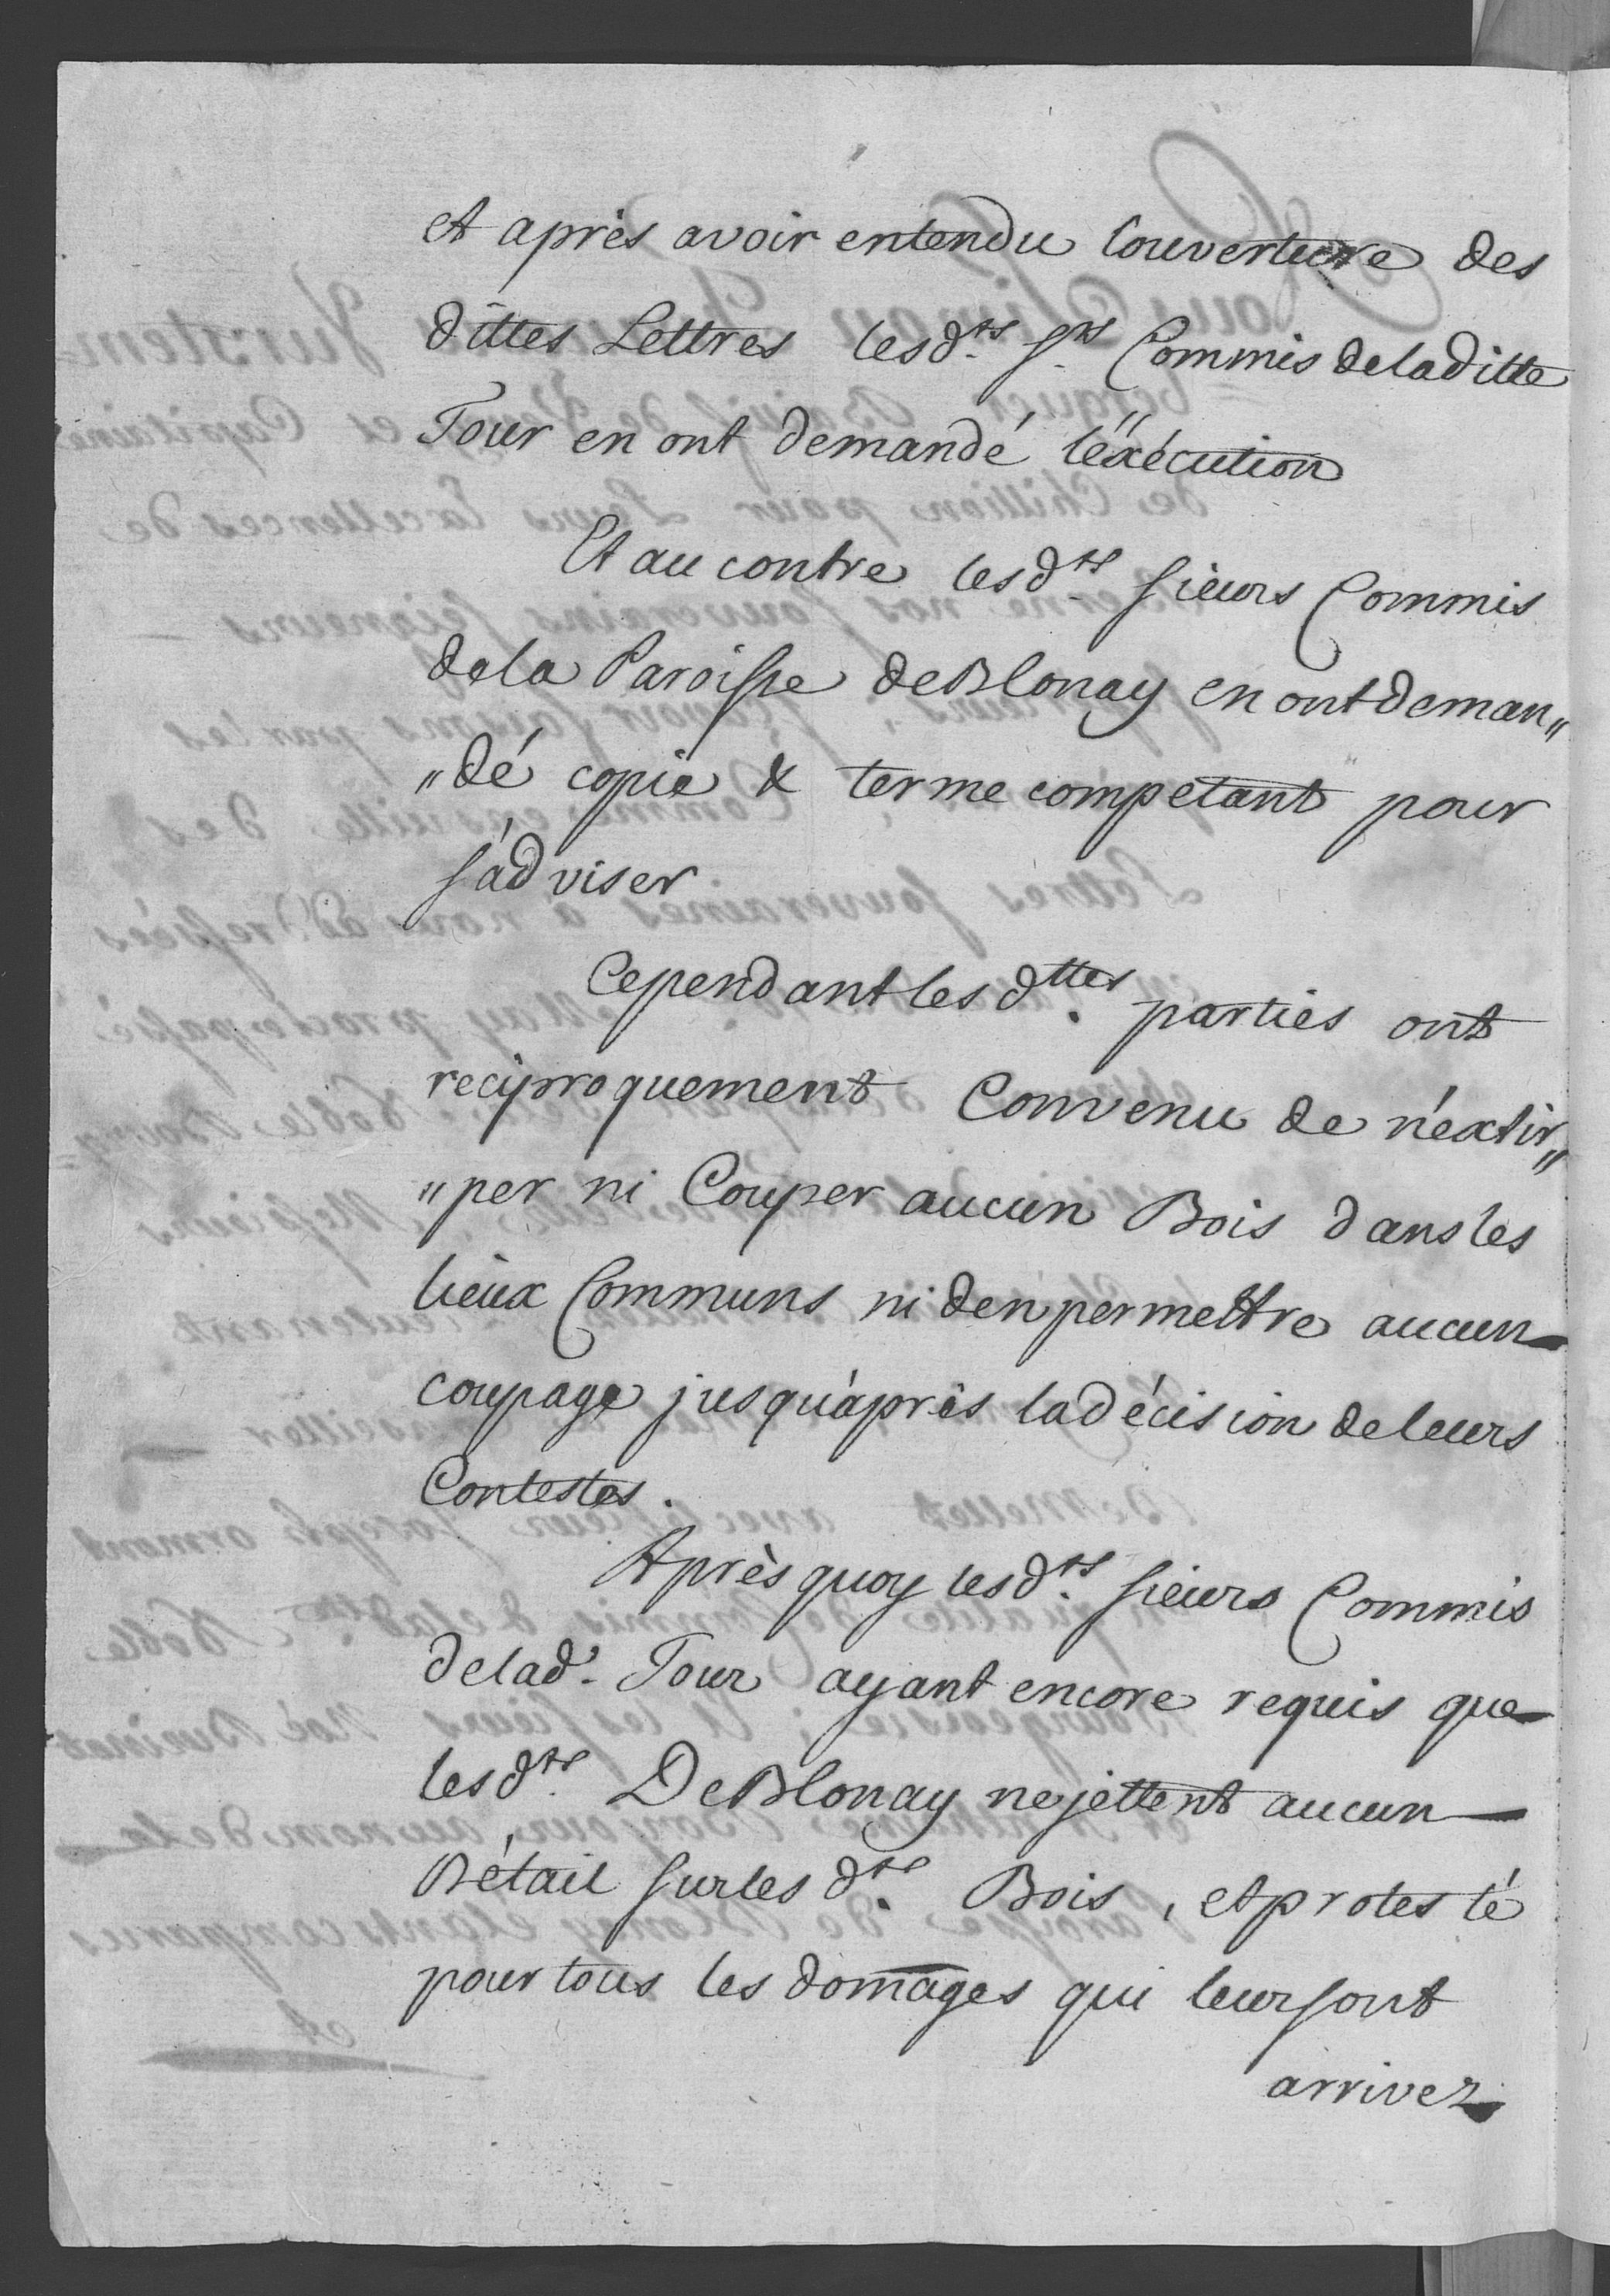 et après avoir entendu l'ouverture des
dittes Lettres lesd.ts S.rs Commis deladitte
Tour en ont demandé l'éxécution
Et au contre lesd.ts sieurs Commis
dela Paroisse deBlonay en ont deman„
„dé copie & terme competant pour
s'adviser
Cependant les d.ttes parties ont
reciproquement Convenu de n'extir„
„per ni Couper aucun Bois dans les
lieux Communs ni den permettre aucun
coupage jusqu'après la décision de leurs
Contestes.
Après quoy les d.ts sieurs Commis
delad. Tour ayant encore requis que
les d.ts DeBlonay ne jettent aucun
Bétail sur les d.ts Bois, et protesté
pour tous les domages qui leur sont
arrivez